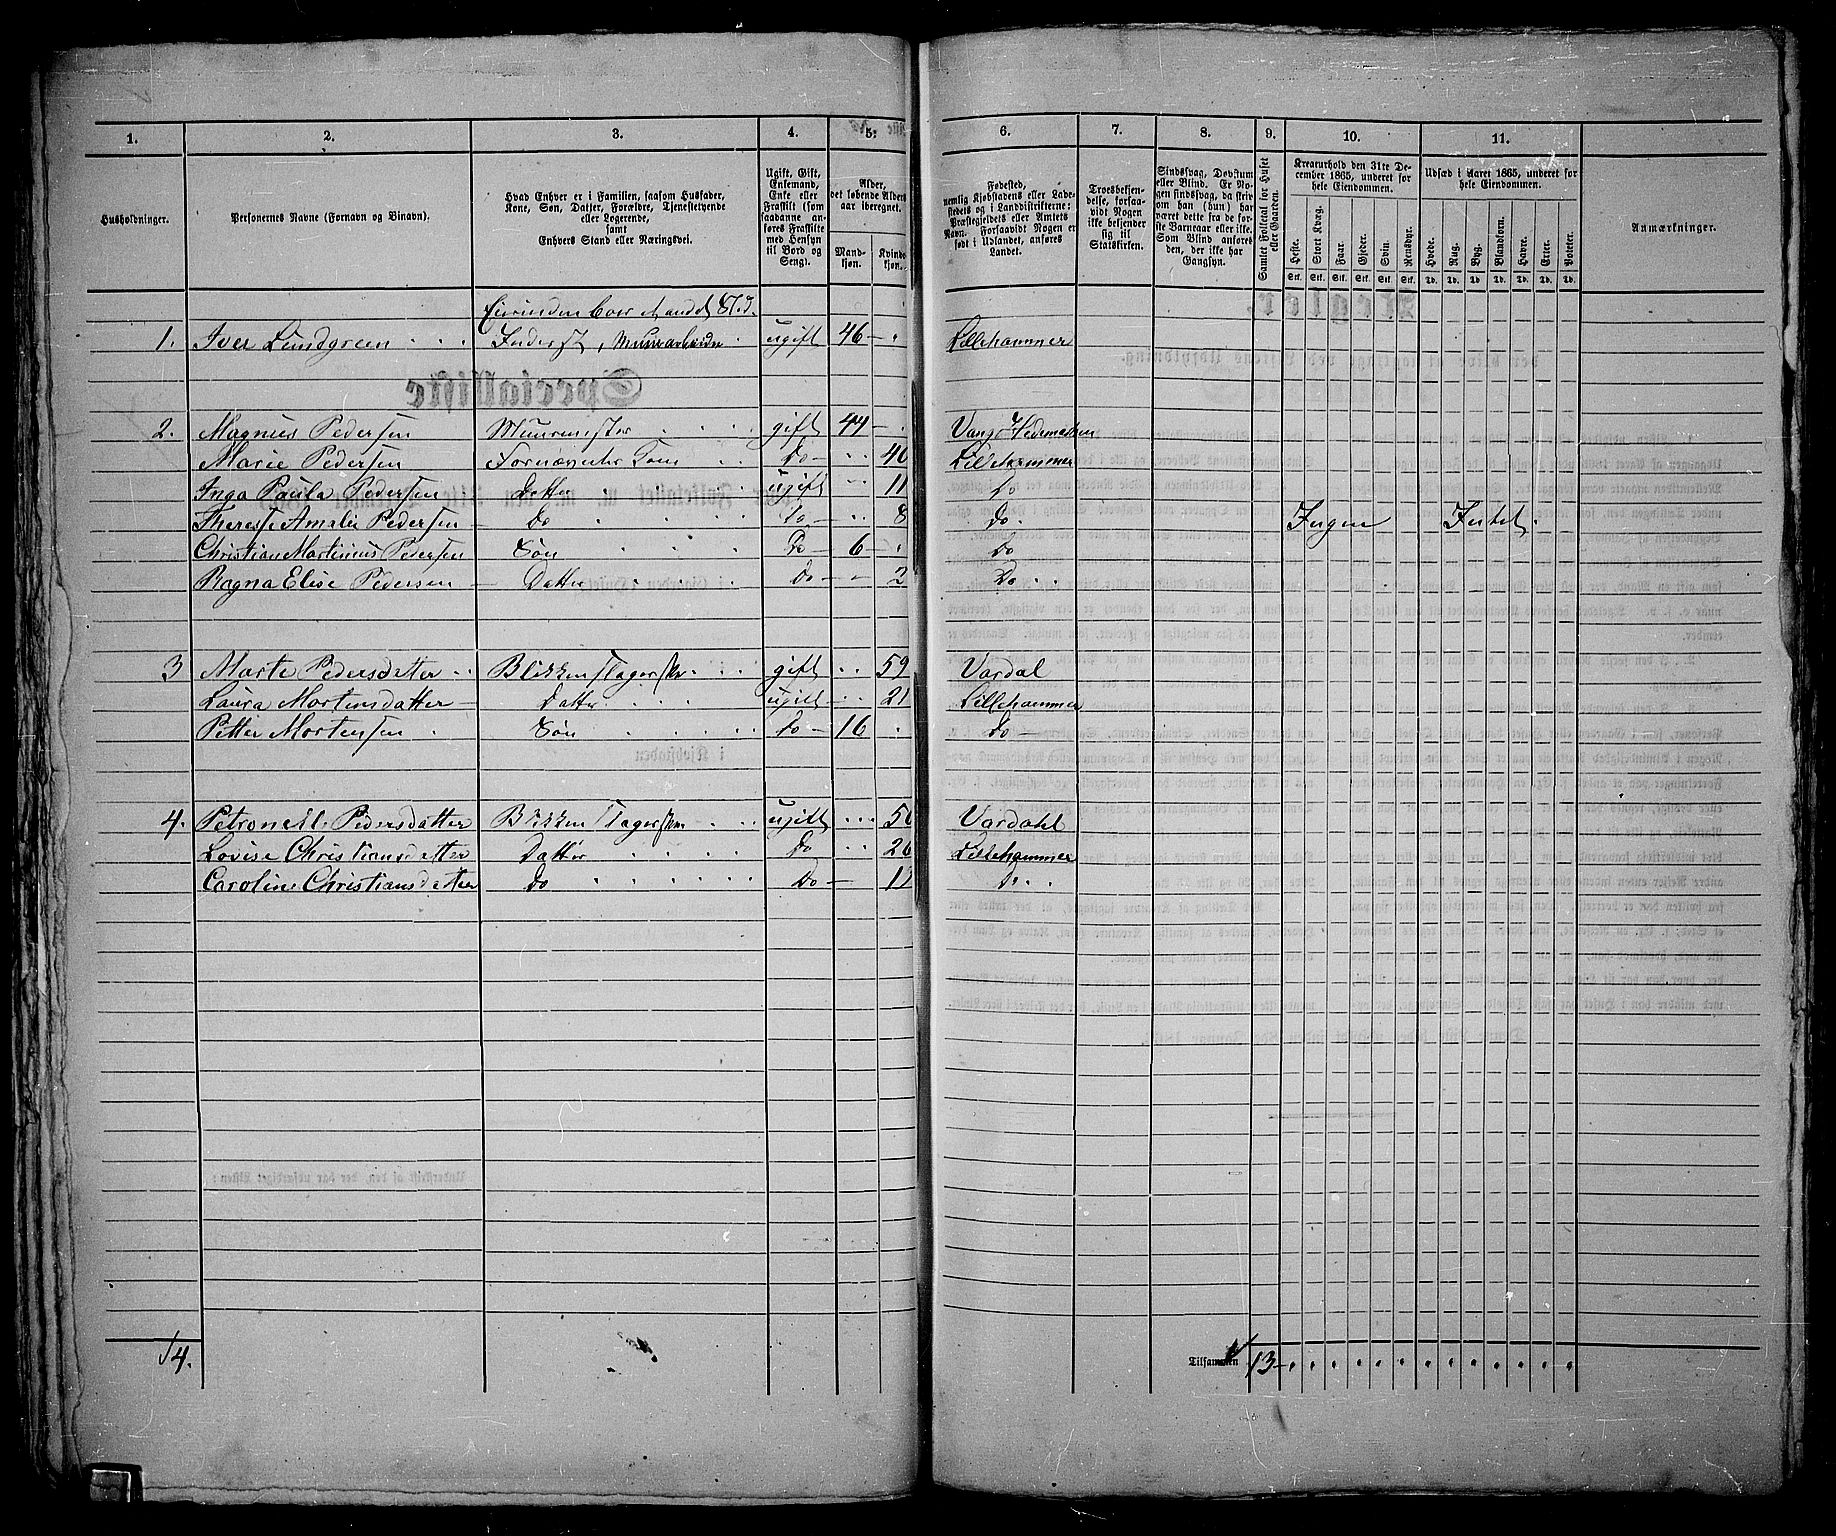 1. 2. 3. 4. 5. 6. 7. 8. 9. 10. 11.
Husholdninger.
Personernes Navne (Fornavn og Binavn).
Hvad Enhver er i Familien, saasom Husfader,
Kone, Søn, Datter, Forældre, Tjenestetyende
eller Logerende,
samt
Enhvers Stand eller Næringsvei.
Ugift, Gift,
Enkemand,
Enke eller
Fraskilt (som
saadanne an-
føres Fraskilte
med Hensyn
til Bord og
Seng).
Alder,
det løbende Alders-
aar iberegnet.
Mand-
kjøn.
Kvinde-
kjøn.
Fødested,
nemlig Kjøbstadens eller Lade-
stedets og i Landdistrikterne:
Præstegjeldets eller Amtets
Navn. Forsaavidt Nogen er
født i Udlandet, anføres
Landet.
Troesbekjen-
delse, forsaa-
vidt Nogen
ikke bekjender
sig til
Statskirken.
Sindssvag, Døvstum
eller Blind. Er No-
gen sindssvag, da skriv
om han (hun) har
været dette fra de før-
ste Barneaar eller ei.
Som Blind anføres
den, der ikke har
Gangsyn.
Samlet Folketal for Huset
eller Gaarden.
Kreaturhold den 31te De-
cember 1865, underet for
hele Eiendommen.
Heste. Stort Kvæg. Faar. Gjeder. Svin. Rensdyr.
Stk. Stk. Stk. Stk. Stk. Stk.
Udsæd i Aaret 1865, underet for
hele Eiendommen.
Hvede. Rug. Byg. Blandkorn. Havre. Erter. Poteter.
Td. Td. Td. Td. Td. Td. Td.
Anmærkninger.
1. Iver Lundgreen Inderst, Muurarbeider ugift 46 Lillehammer
2. Magnus Pedersen Muurmester gift 44 Vang Hedemarken
Marie Pedersen Fornævnte Kone Do 40 Lillehammer
Inga Paula Pedersen Datter ugift 11 Do
Therese Amalie Pedersen Do Do 8 Do Ingen Intet
Christian Martinius Pedersen Søn Do 6 Do
Ragna Elise Pedersen Datter Do 2 Do
3 Marte Pedersdatter gift 59 Vardal
Laura Mortensdatter Datter ugift 21 Lillehammer
Petter Mortensen Søn Do 16 Do
4. Petronelle Pedersdatter ugift Vardahl
Lovise Christiansdatter Datter Do 26 Lillehammer
Caroline Christiansdatter Do Do Do
4. Tilsammen 13